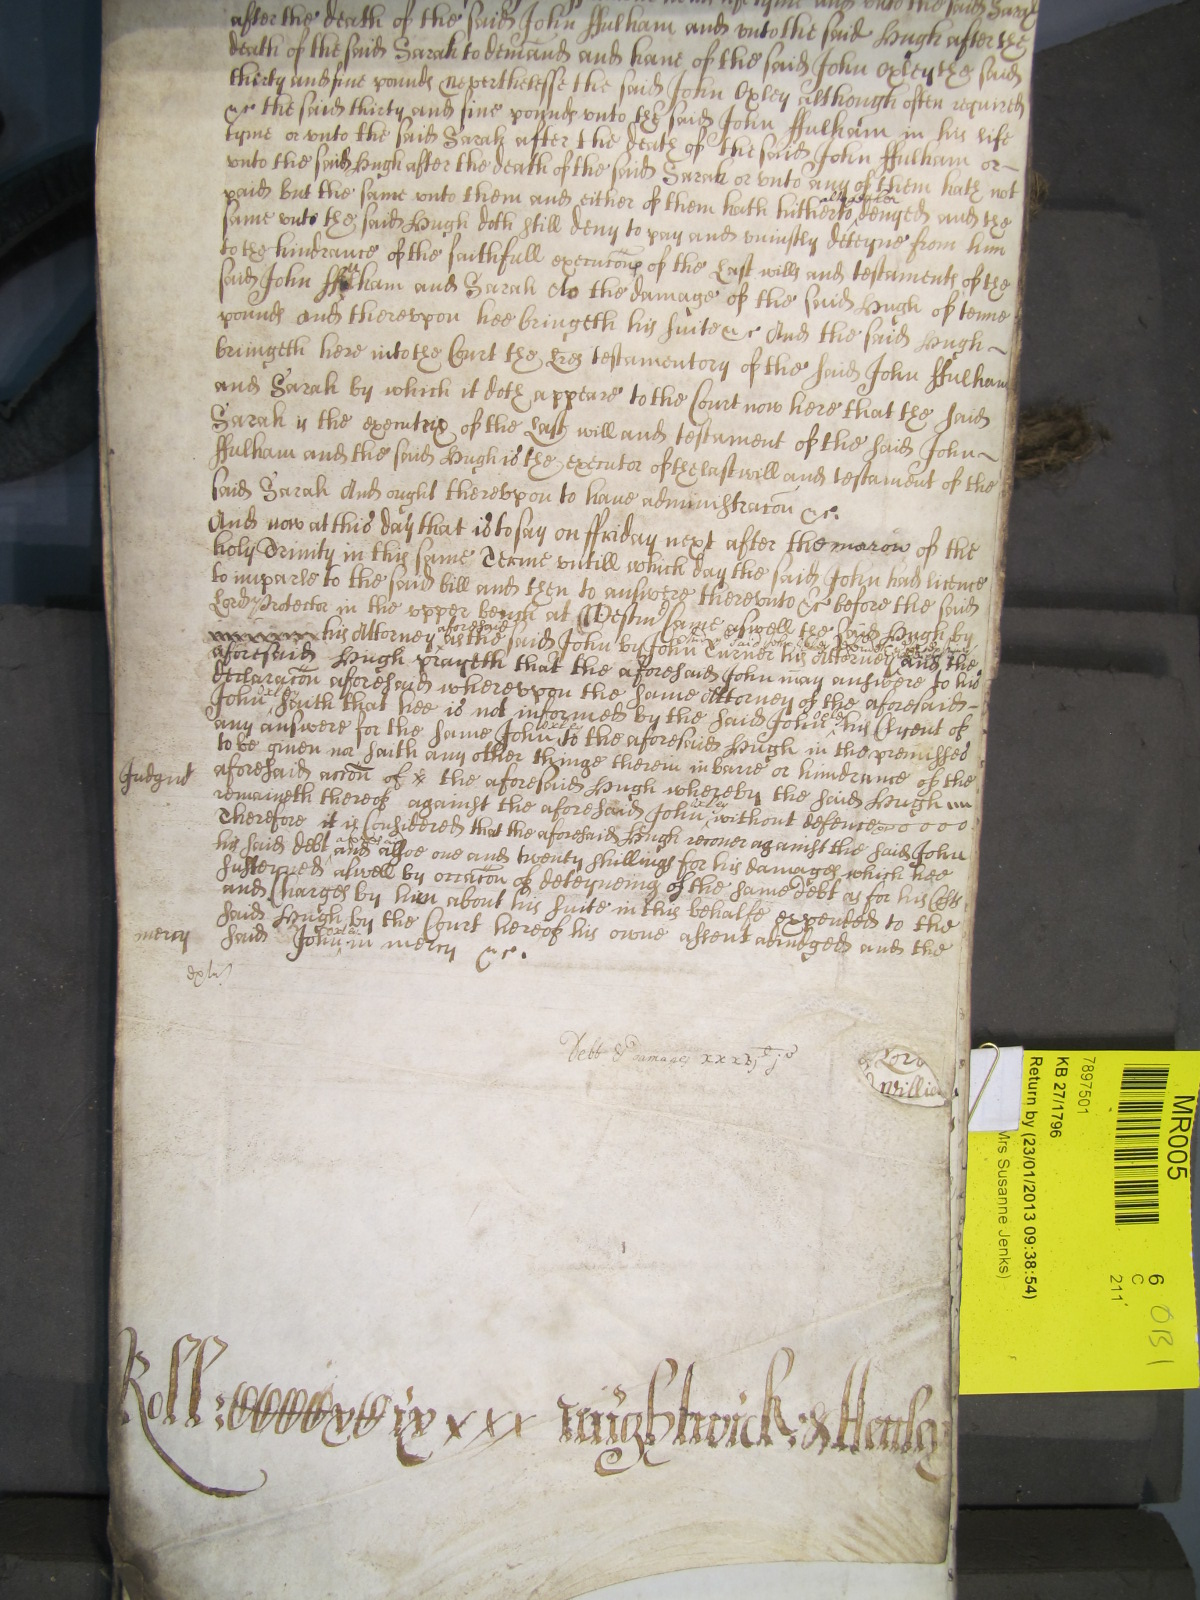 after the death of the said John ffulham and vnto the said Hugh after the
death of the said Sarah to demaund and haue of the said John Oxley the said
thirty and fiue pounds Neverthelesse the said John Oxley although often required
&c the said thirty and fiue pounds vnto the said John ffulham in his life
tyme or vnto the said Sarah after the death of the said John ffulham or
vnto the said Hugh after the death of the said Sarah or vnto any of them hath not
paid but the same vnto them and either of them hath hitherto altogether denyed and the
same vnto the said Hugh doth still deny to pay and vniustly deteyne from him
to the hindrance of the faithfull execucon of the Last wills and testaments of the
said John ffulham and Sarah To the damage of the said Hugh of tenne
pounds And therevpon hee bringeth his suite &c And the said Hugh
bringeth here into the Court the lres testamentory of the said John ffulham
and Sarah by which it doth appeare to the Court now here that the said
Sarah is the executrix of the Last will and testament of the said John
ffulham and the said Hugh is the executor of the last will and testament of the
said Sarah And ought therevpon to haue administracon &c.
And now at this day that is to say on ffriday next after the morow of the
holy Trinity in this same Terme vntill which day the said John had licence
to imparle to the said bill and then to answere therevnto &c before the said
Lord Protector in the vpper bench at Westm came aswell the said Hugh by
his Attorney aforesaid as the said John by John Turner his Attorney And the
aforesaid Hugh prayeth that the aforesaid John may answere to his
declaracon aforesaid wherevpon the same Attorney of the aforesaid
John Oxley saith that hee is not informed by the said John Oxley his Clyent of
any answere for the same John Oxley to the aforesaid Hugh in the premisses
to be giuen nor saith any other thinge therein in barre or hindrance of the
aforesaid accon of the aforesaid Hugh whereby the said Hugh
remaineth thereof against the aforesaid John Oxley without defence
Judgmt Therefore it is Considered that the aforesaid Hugh recouer against the said John
his said debt and alsoe one and twenty shillings for his damages which hee
susteyned aswell by occacon of deteyneing of the same debt as for his Costs
and Charges by him about his suite in this behalfe expended to the
said Hugh by the Court hereof his owne assent adiudged and the
mercy said John Oxley in mercy &c.
Debt & damages xxxvj
Lord
Willia
Roll: xxx Wightwick & Henley
MR005
6
C
211
OB1
7897501
KB 27/1796
Return by (23/01/2013 09:38:54)
Mrs Susanne Jenks)